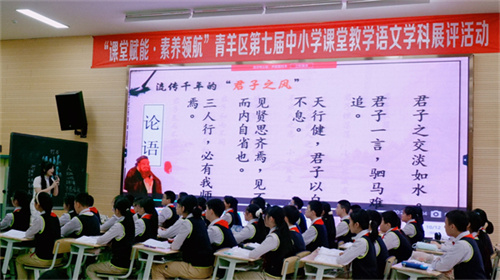 “课堂赋能·素养领航”青羊区第七届中小学课堂教学语文学科展评活动
流传千年的“君子之风”
君子之交淡如水。
君子一言，驷马难
追。
天行健，君子以自
不息。
见贤思齐焉，见
而内自省也。
三人行，必有我师
焉。
论语